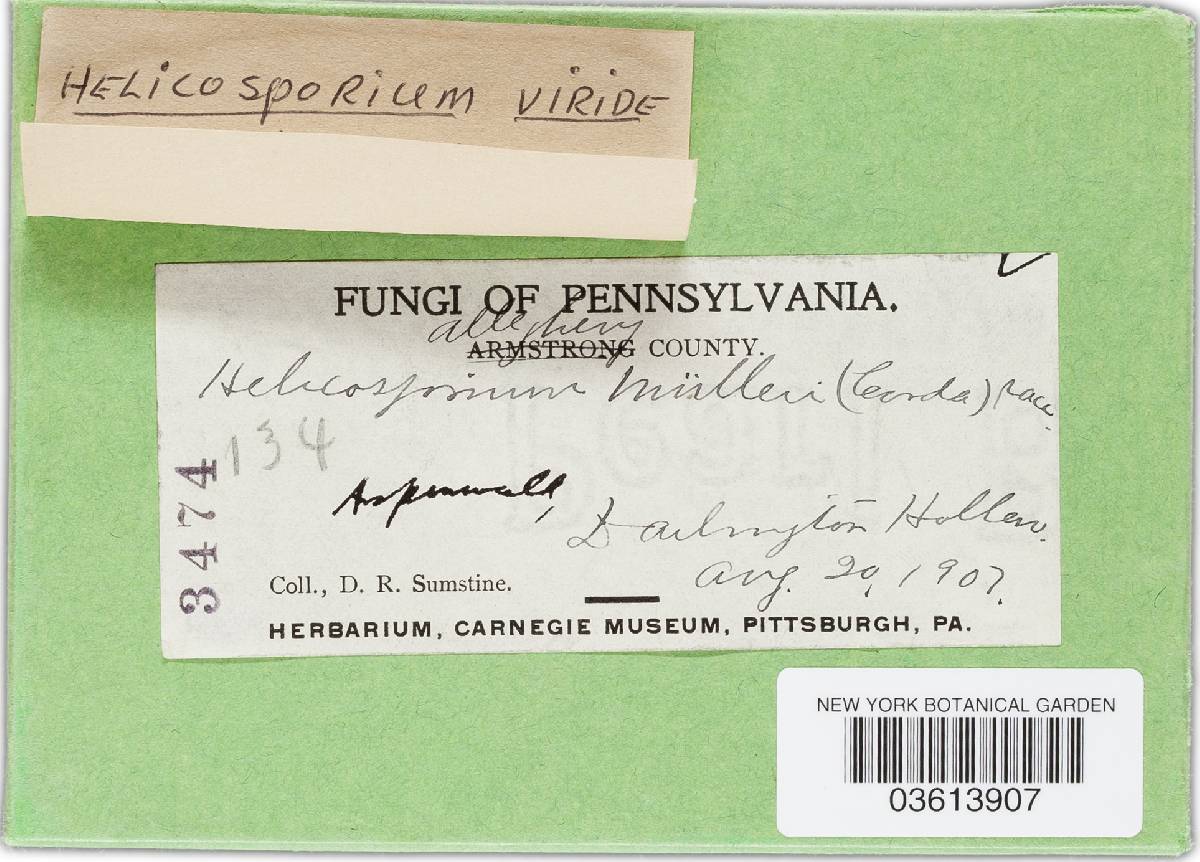 HELICOSPORIUM VIRIDE
FUNGI OF PENNSYLVANIA.
allegheny
ARMSTRONG COUNTY.
Helicosporium Mülleri (Corda) Sacc.
134
3474
Aspinwall,
Darlington Hollow.
Aug. 20, 1907.
Coll., D. R. Sumstine.
HERBARIUM, CARNEGIE MUSEUM, PITTSBURGH, PA.
NEW YORK BOTANICAL GARDEN
03613907